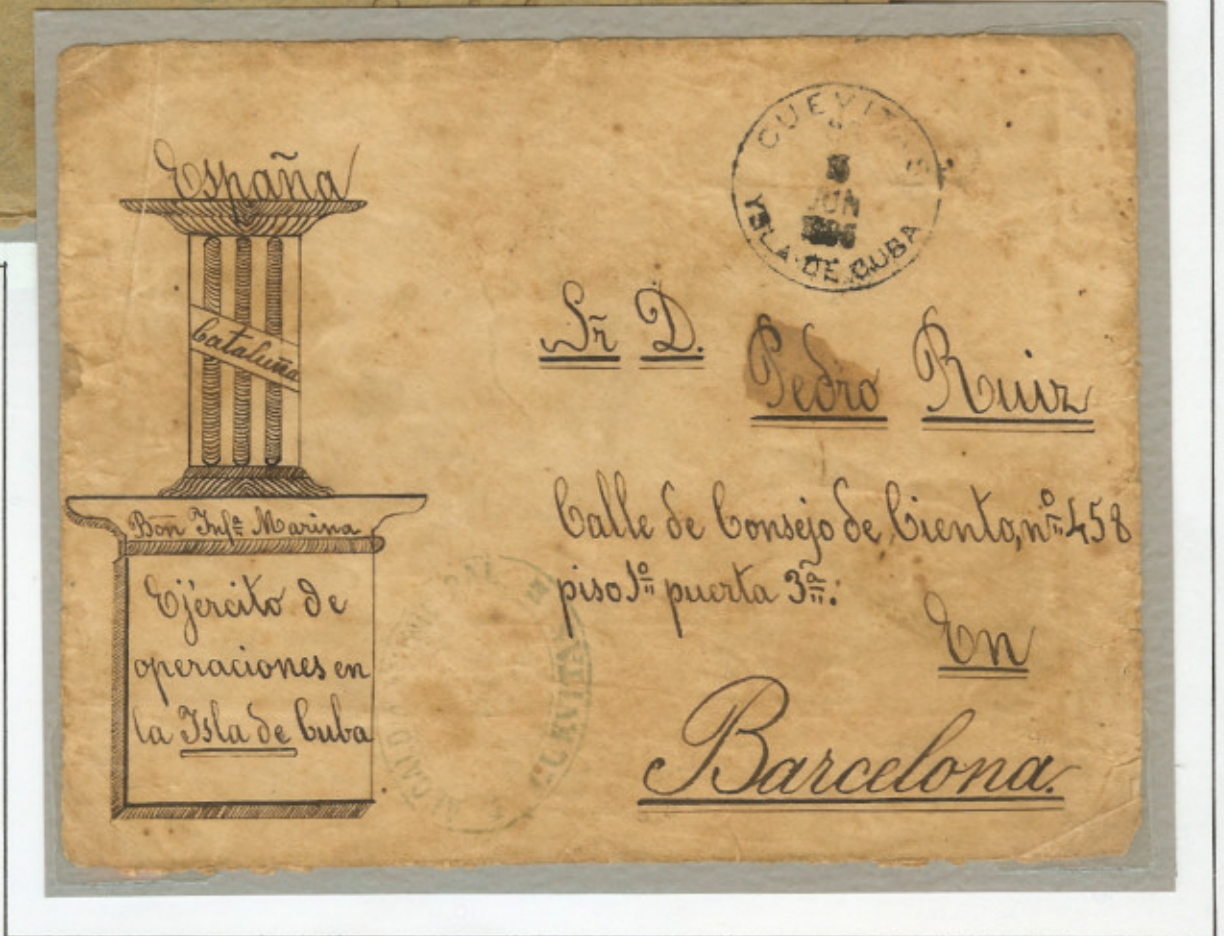 España
Cataluña
Bon Infª Marina
Ejército de
operaciones en
la Isla de Cuba
JUN
YSLA DE CUBA
Sr D. Pedro Ruiz
Calle de Consejo de Ciento, nº 458
piso 1º puerta 3ª:
En
Barcelona.